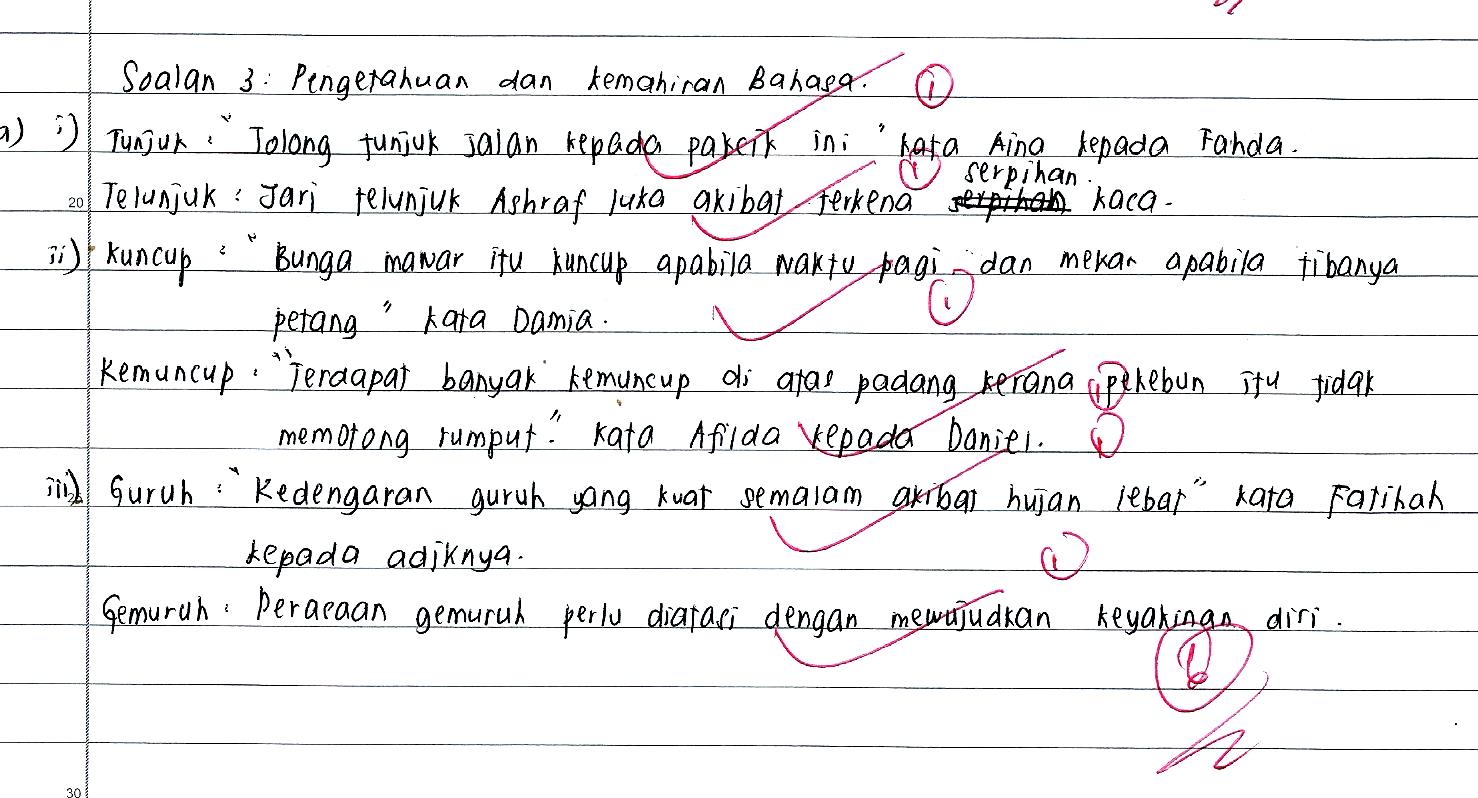 Soalan 3: Pengetahuan dan kemahiran Bahasa. 1
a) i) Tunjuk : "Tolong tunjuk jalan kepada pakcik ini" kata Aina kepada Fahda.
1 serpihan.
20 Telunjuk : Jari telunjuk Ashraf luka akibat terkena serpihan kaca.
ii) Kuncup : "Bunga mawar itu kuncup apabila waktu pagi dan mekar apabila tibanya
petang" kata Damia. 1
Kemuncup : "Terdapat banyak kemuncup di atas padang kerana pekebun itu tidak 1
memotong rumput." kata Afilda kepada Daniel. 1
iii) Guruh : "Kedengaran guruh yang kuat semalam akibat hujan lebat" kata Fatihah
kepada adiknya. 1
Gemuruh : Perasaan gemuruh perlu diatasi dengan mewujudkan keyakingan diri.
6
30